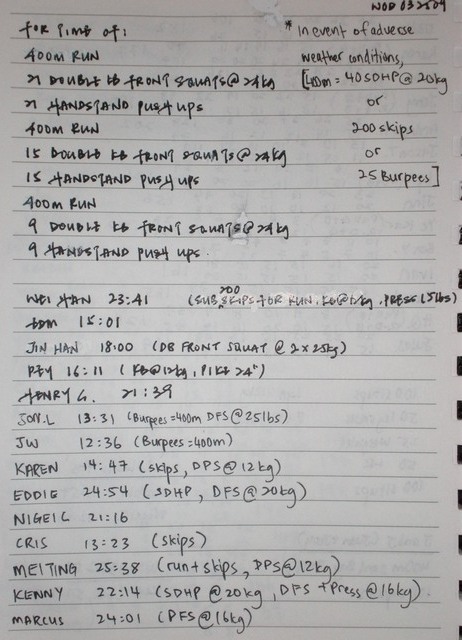 WOD 032509
FOR TIME OF:
* In event of adverse
400m RUN
weather conditions,
21 DOUBLE KB FRONT SQUATS @ 24kg
[400m = 40 SDHP @ 20kg
21 HANDSTAND PUSH UPS
or
400m RUN
200 skips
15 DOUBLE KB FRONT SQUATS @ 24kg
or
15 HANDSTAND PUSH UPS
25 Burpees]
400m RUN
9 DOUBLE KB FRONT SQUATS @ 24kg
9 HANDSTAND PUSH UPS.
WEI HAN 23:41 (SUB 200 SKIPS FOR RUN, KB @ 12kg, PRESS 15lbs)
15:01
JIN HAN 18:00 (DB FRONT SQUAT @ 2 x 25kg)
REY 16:11 (KB @ 12kg, PIKE 24")
HENRY G. 21:39
JON.L 13:31 (Burpees = 400m DFS @ 25lbs)
JW 12:36 (Burpees = 400m)
KAREN 14:47 (skips, DPS @ 12kg)
EDDIE 24:54 (SDHP, DFS @ 20kg)
NIGEIL 21:16
CRIS 13:23 (skips)
MEITING 25:38 (run + skips, DPS @ 12kg)
KENNY 22:14 (SDHP @ 20kg, DFS + Press @ 16kg).
MARCUS 24:01 (DFS @ 16kg)